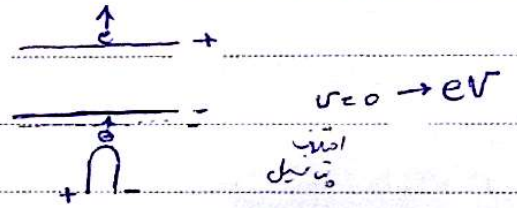 e +
-
v=0 → eV
e
اختلاف
پتانسیل
+ -